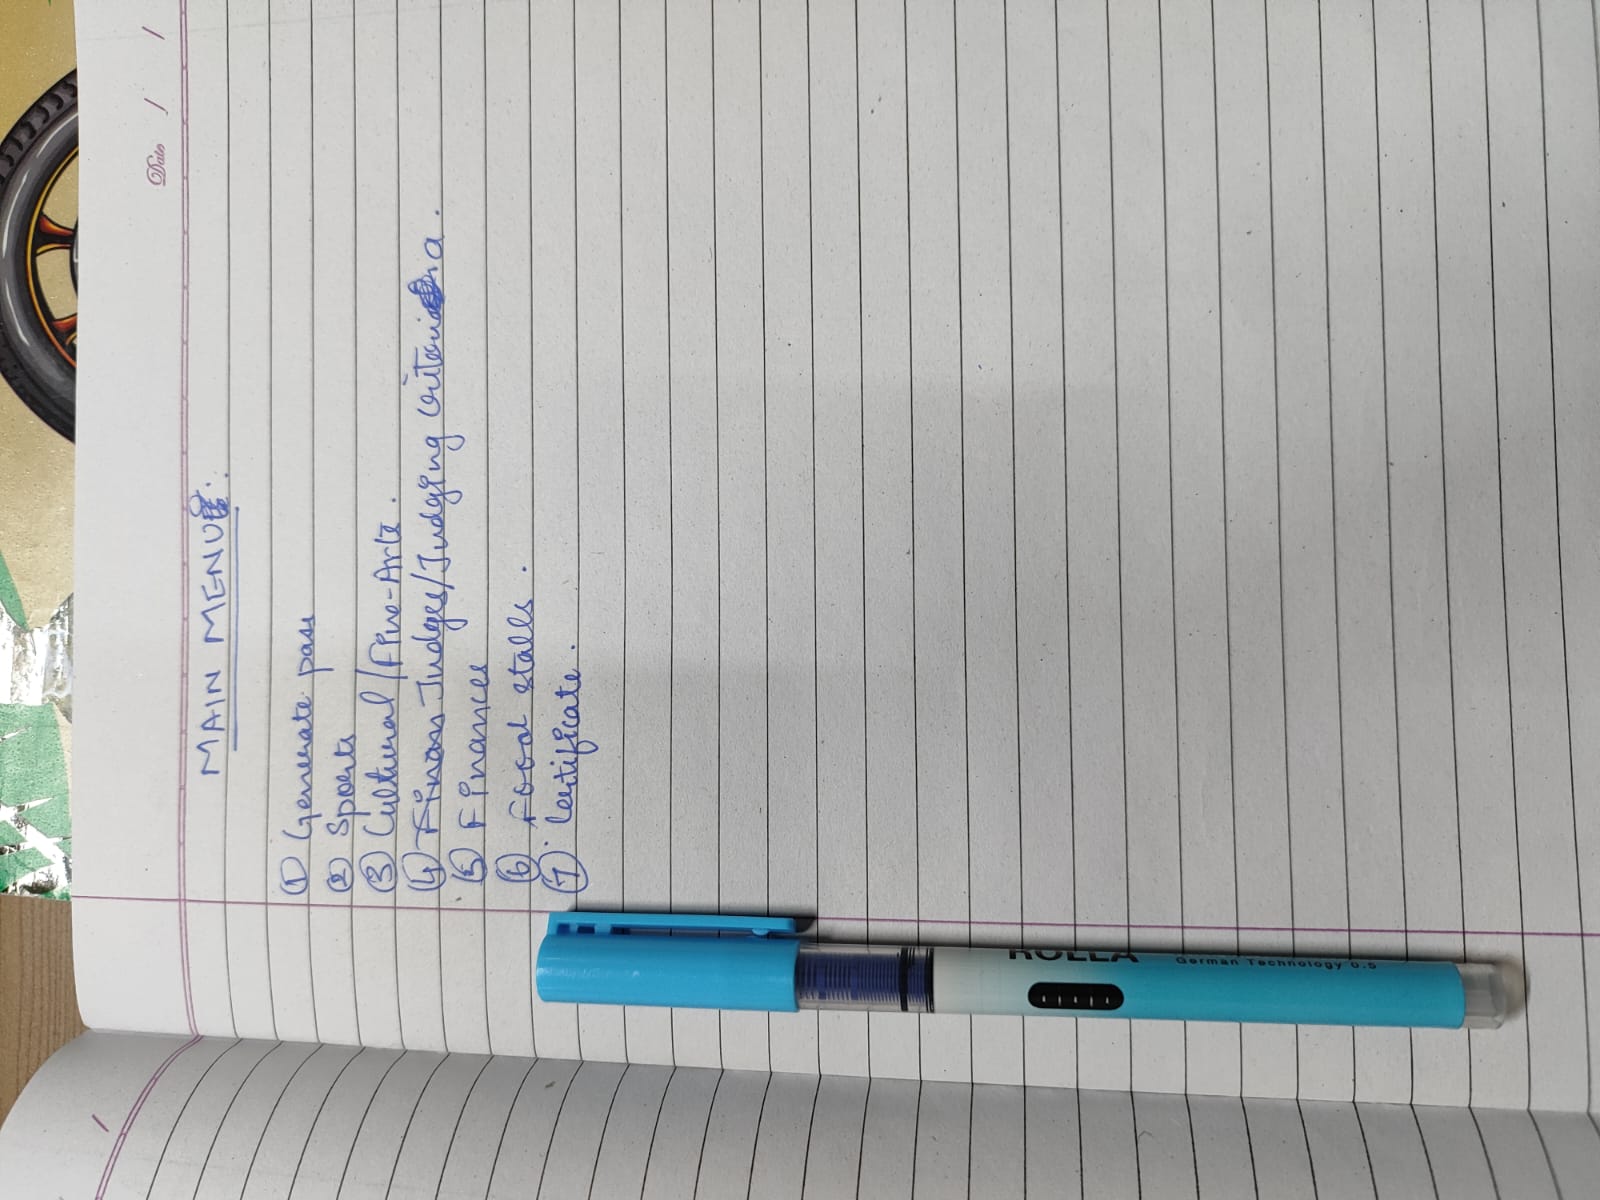 Date / /
MAIN MENU:
① Generate pass
② Sports
③ Cultural/Fine-Arts.
④ Finan Judges/Judging criteria.
⑤ Finances
⑥ Food stalls.
⑦ Certificate.
ROLLA German Technology 0.5